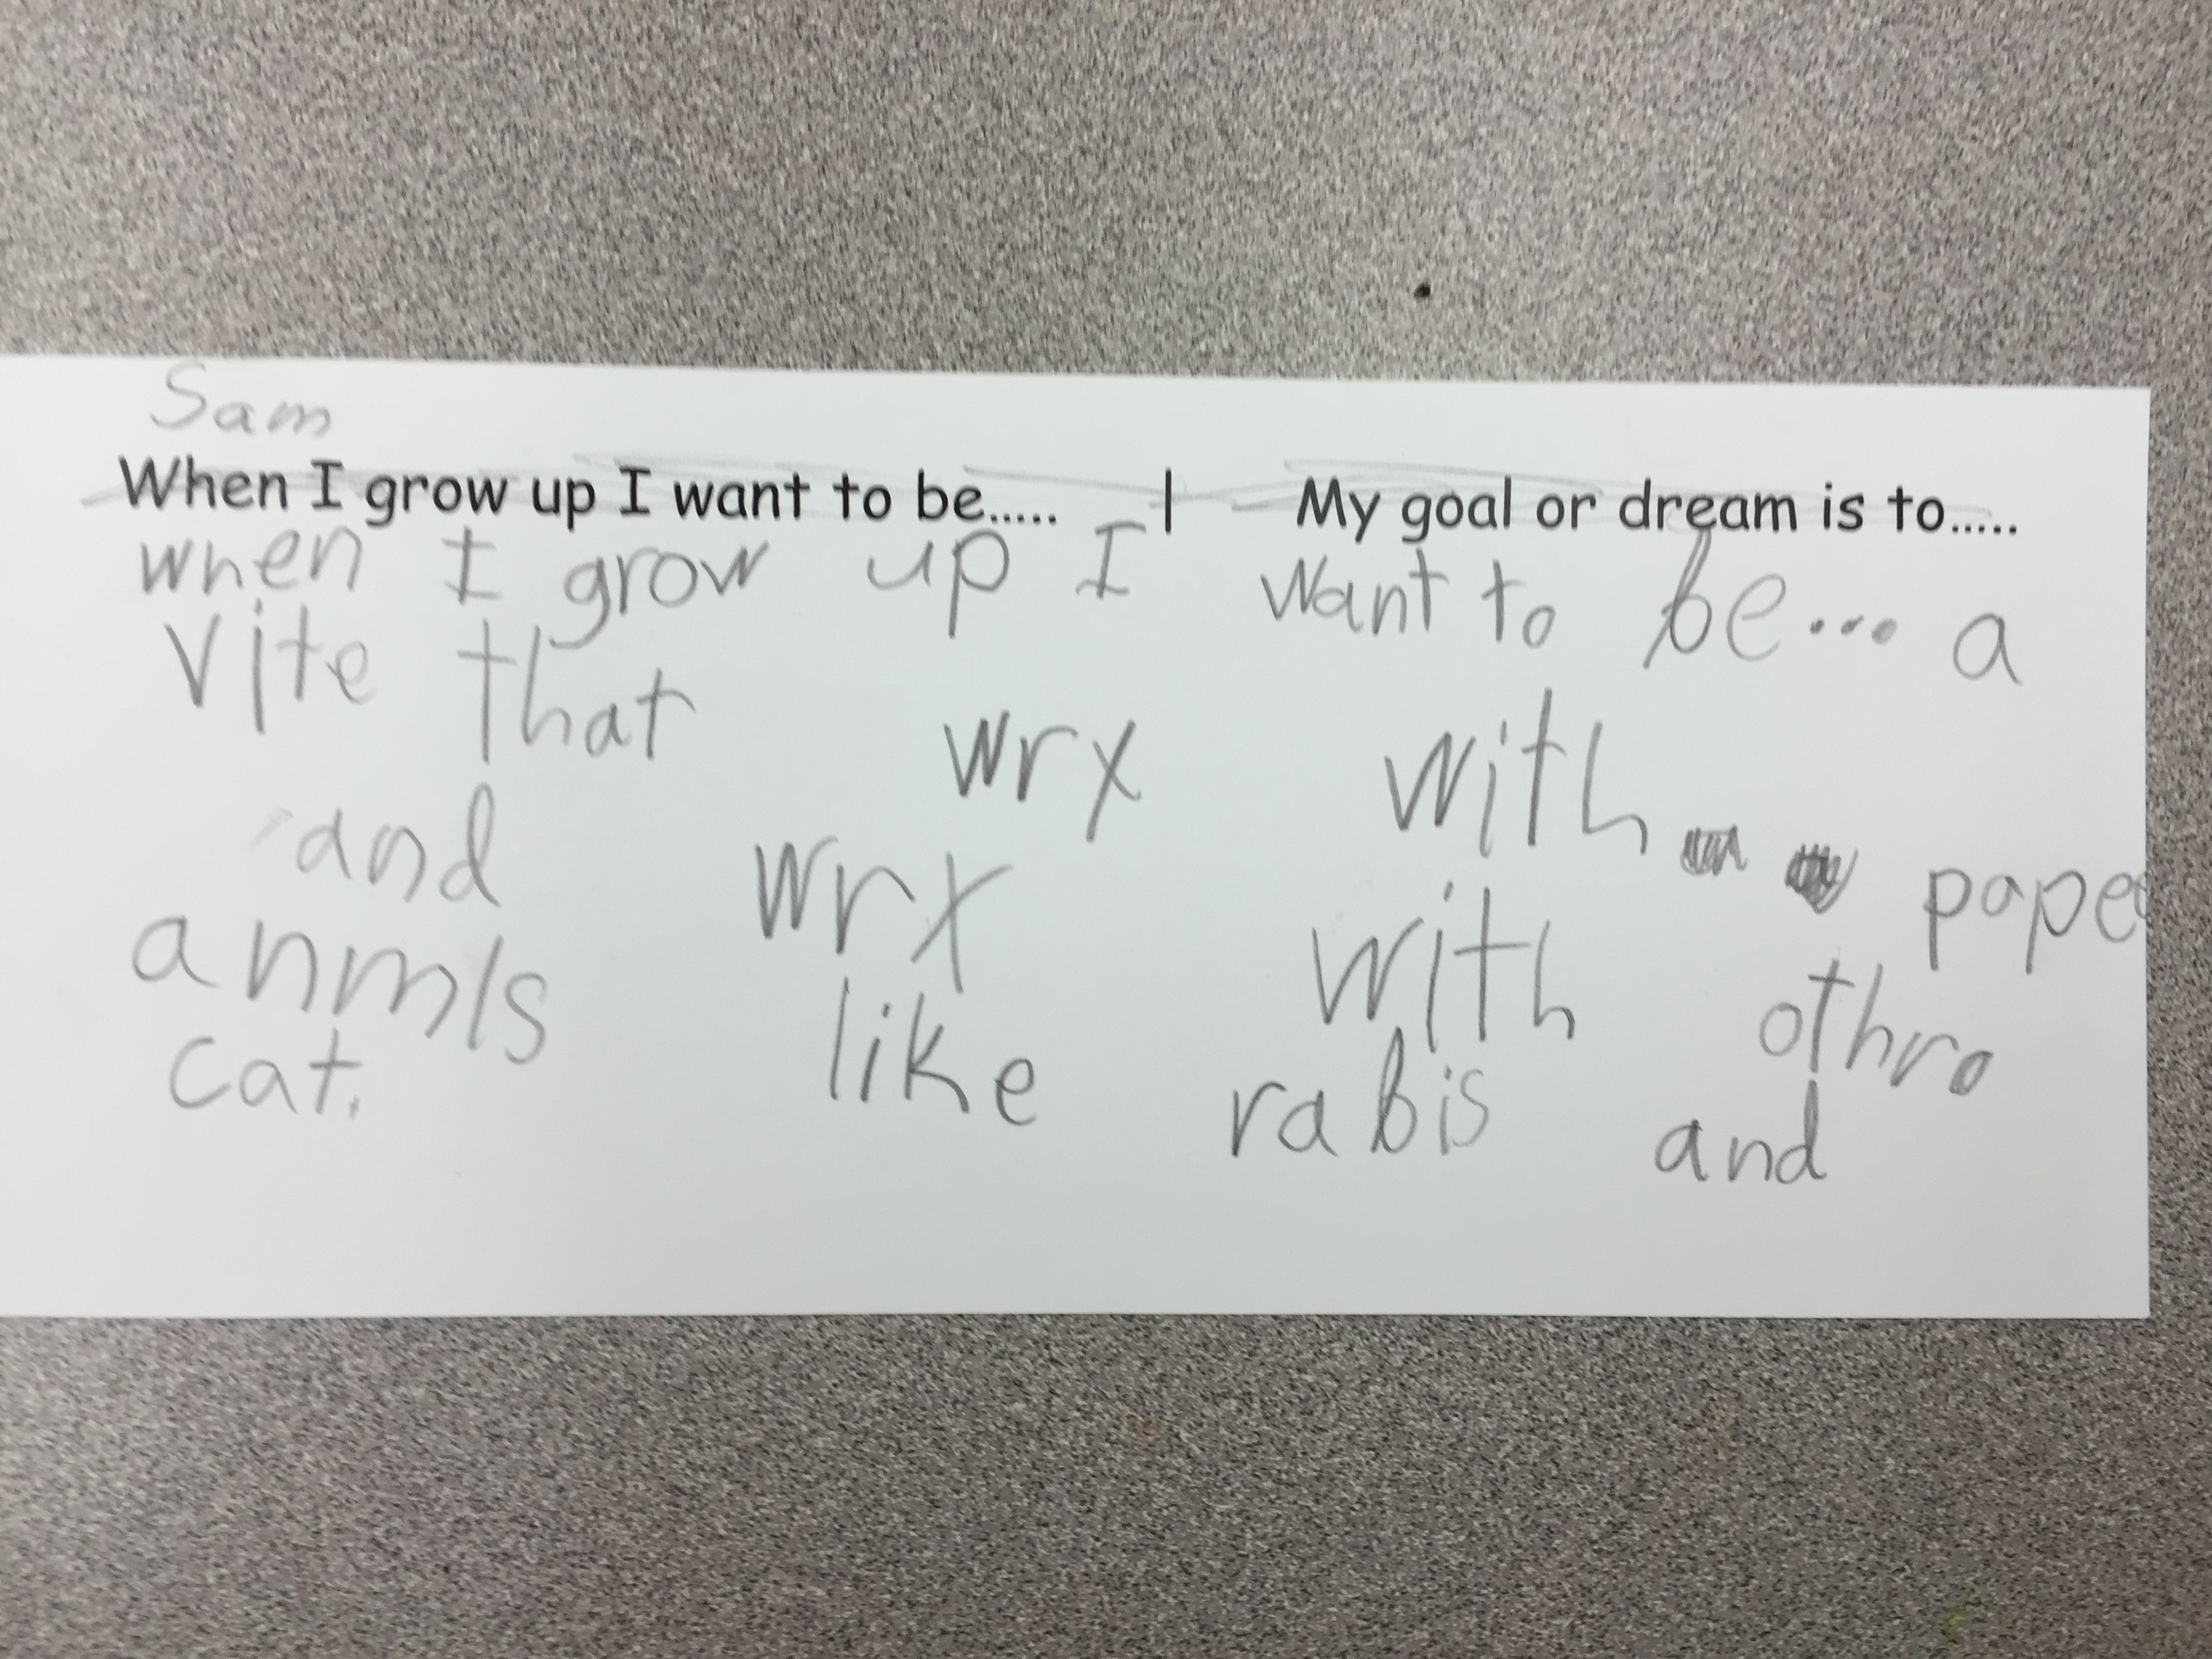 Sam
When I grow up I want to be..... | My goal or dream is to.....
when I grow up I want to be... a
vite that wrx with pape
and wrx with othro
anmls like rabis and
cat.